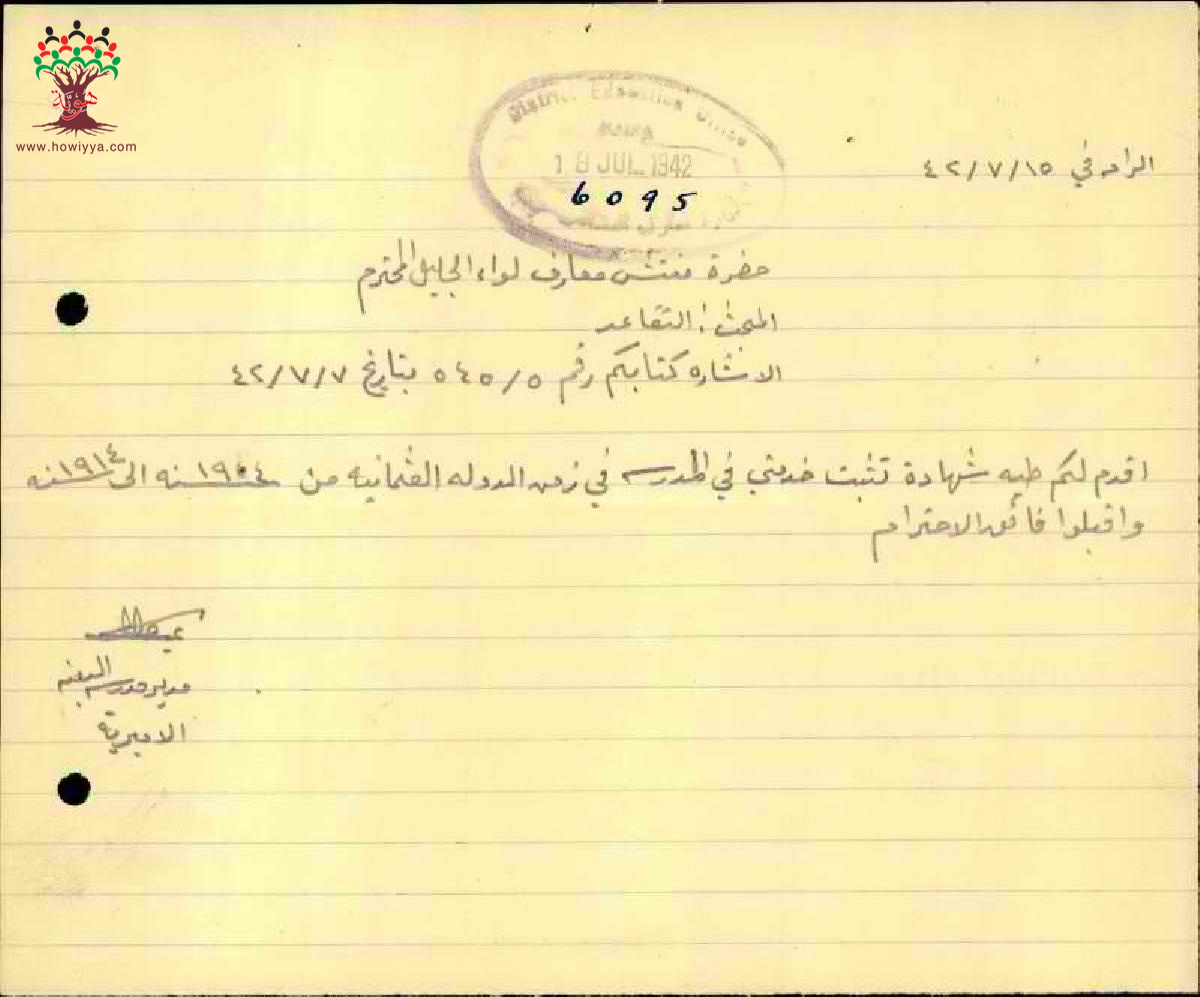 هوية
www.howiyya.com
District Education Office
18 JUL 1942
6095
في ٤٢/٧/١٥
حضرة مفتش معارف لواء الجليل المحترم
المبحث: التقاعد
الاشاره كتابكم رقم ٥٤٥/٥ بتاريخ ٤٢/٧/٧
اقدم لكم طيه شهادة تثبت خدمتي في المدرسه في زمن الدوله العثمانيه من سنه ١٩٠٤ الى سنه ١٩١٤
واقبلوا فائق الاحترام
مدير مدرسة
الاميرية